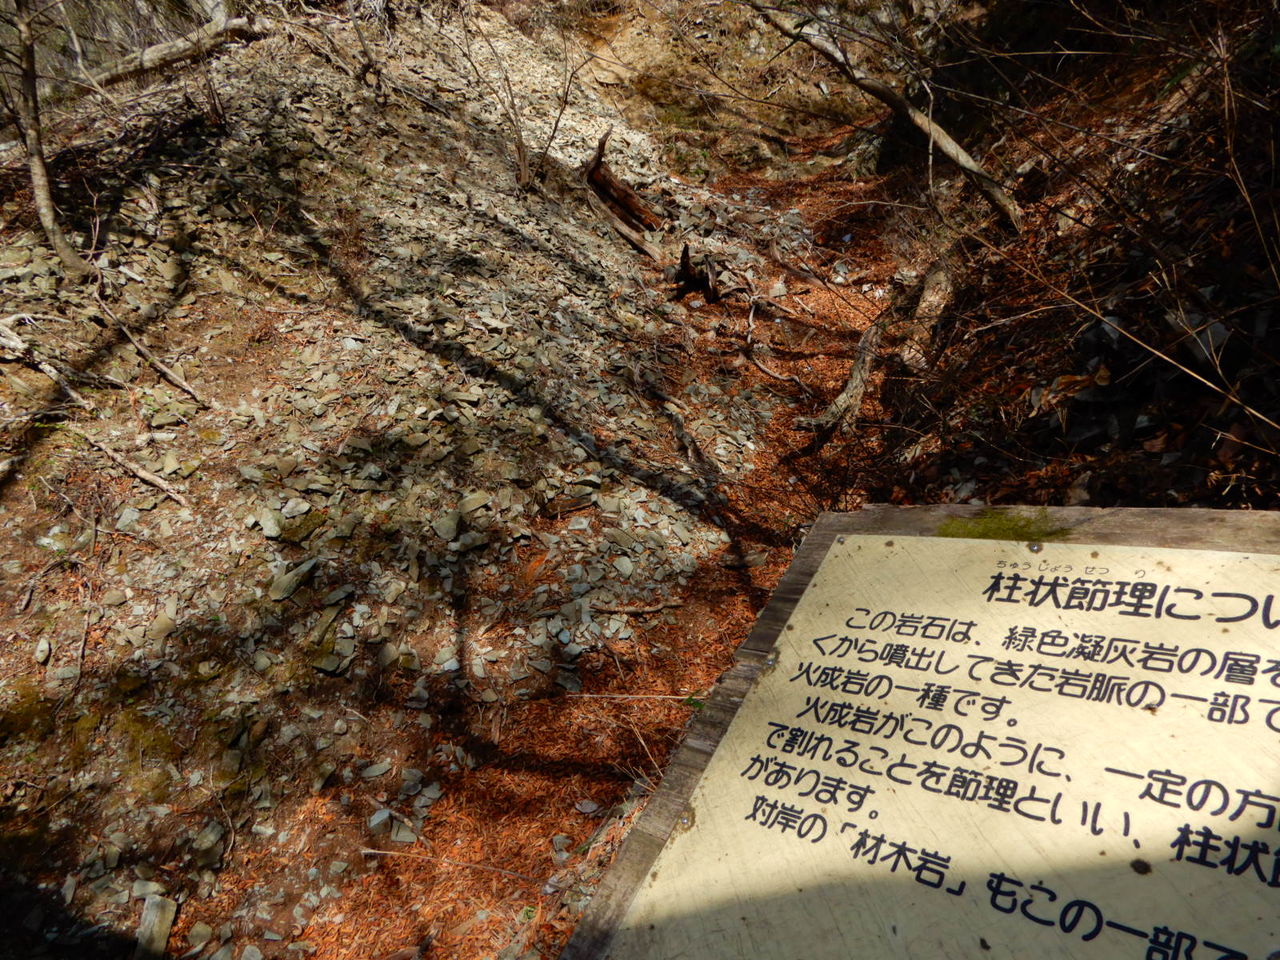 ちゅうじょう せつ り
柱状節理につい
この岩石は、緑色凝灰岩の層を
くから噴出してきた岩脈の一部で
火成岩の一種です。
火成岩がこのように、一定の方
で割れることを節理といい、柱状
があります。
対岸の「材木岩」もこの一部で